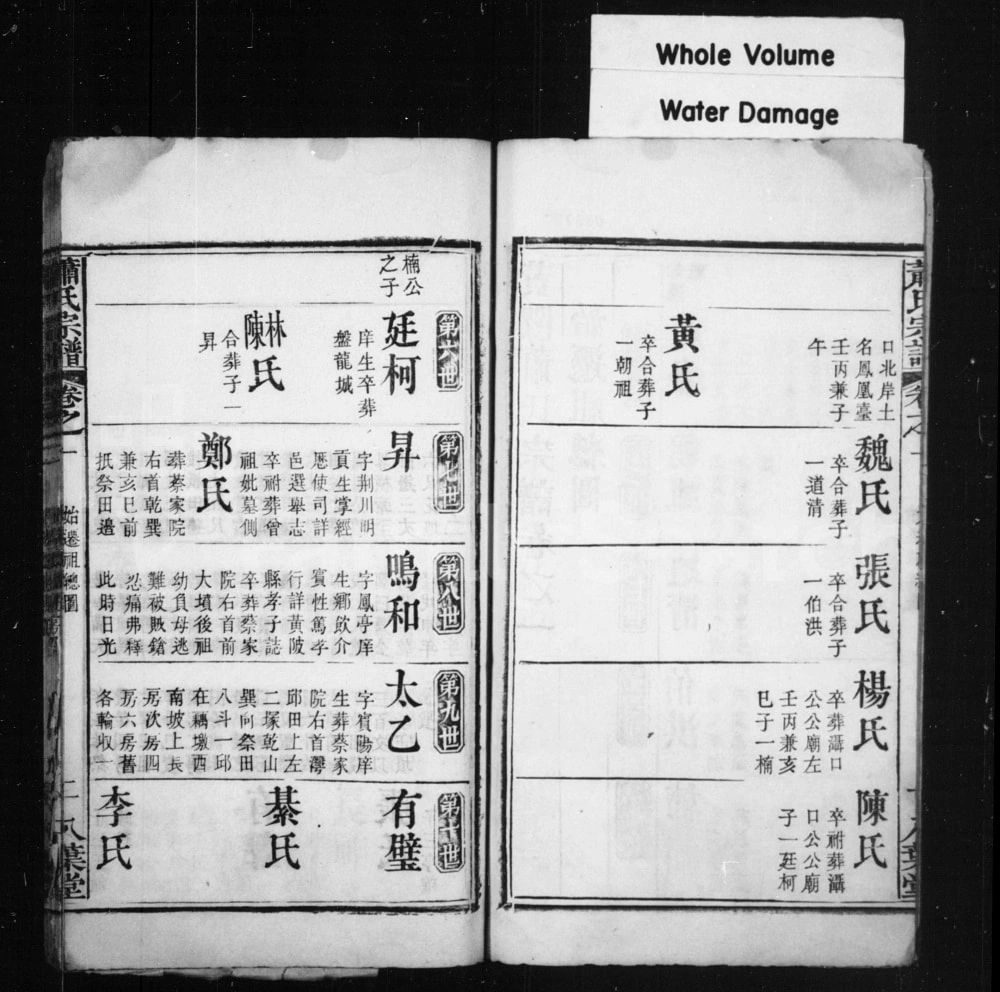 Whole Volume
Water Damage
口北岸土
名鳳凰臺
壬丙兼子
午
黃氏
卒合葬子
一朝祖
魏氏
卒合葬子
一道清
張氏
卒合葬子
一伯洪
楊氏
卒葬灄口
公公廟左
壬丙兼亥
巳子一楠
陳氏
卒祔葬灄
口公公廟
子一廷柯
第六世
楠公
之子
廷柯
庠生卒葬
盤龍城
林
陳氏
合葬子一
昇
第七世
昇
字荆川明
貢生掌經
厯使司詳
邑選舉志
卒祔葬曾
祖妣墓側
鄭氏
葬蔡家院
右首乾巽
兼亥巳前
抵祭田邉
第八世
鳴和
字鳳亭庠
生鄉飲介
賓性篤孝
行詳黃陂
縣孝子誌
卒葬蔡家
院右首前
大墳後祖
幼負母逃
難被賊鎗
忍痛弗釋
此時日光
第九世
太乙
字賓陽庠
生葬蔡家
院右首灣
邱田上左
二塚乾山
巽向祭田
八斗一邱
在藕墩西
南坡上長
房次房四
房六房舊
各輪取一
第十世
有璧
綦氏
李氏
蕭氏宗譜
卷之一
始遷祖總圖
二
八葉堂